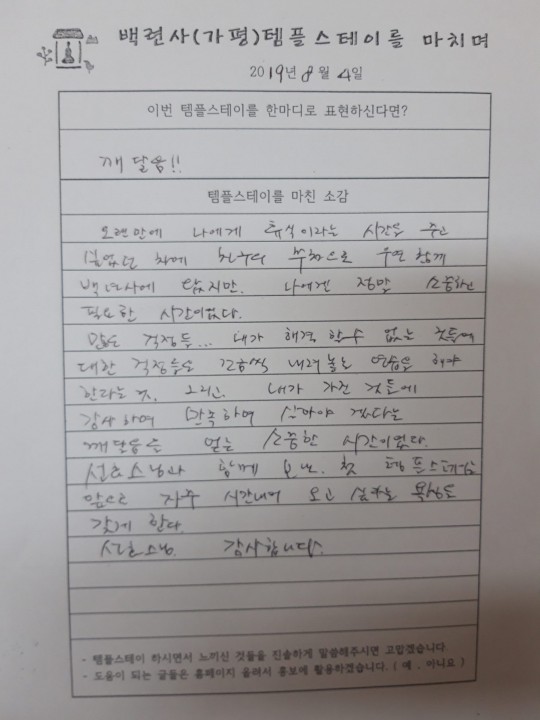 백련사(가평)템플스테이를 마치며
2019년 8월 4일
이번 템플스테이를 한마디로 표현하신다면?
깨달음!!
템플스테이를 마친 소감
오랜만에 나에게 휴식이라는 시간을 주고
싶었던 차에 친구의 추천으로 우연함께
백련사에 왔지만. 나에겐 정말 소중하고
필요한 시간이었다.
많은 걱정들... 내가 해결 할수 없는 것들에
대한 걱정들도 조금씩 내려놓는 연습을 해야
한다는 것, 그리고. 내가 가진 것들에
감사하며 만족하며 살아야 겠다는
깨달음을 얻는 소중한 시간이었다.
선효스님과 함께 보낸. 첫 템플스테이
앞으로 자주 시간내어 오고 싶다는 목상도
갖게 한다.
선효스님. 감사합니다.
- 템플스테이 하시면서 느끼신 것들을 진솔하게 말씀해주시면 고맙겠습니다.
- 도움이 되는 글들은 홈페이지 올려서 홍보에 활용하겠습니다. ( 예 . 아니요 )